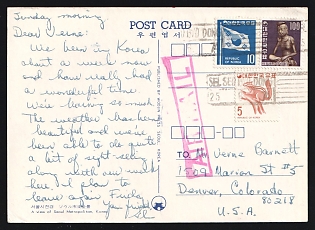 Sunday morning
POST CARD
우편엽서
Dear Verne:
We been in Korea
about a week now
and have really had
a wonderful time.
We're learning so much.
The weather has been
beautiful and we've
been able to do quite
a bit of sight-seeing
along with our work
here. I plan to
leave again Friday.
Your friend,
10
100
REPUBLIC OF KOREA
5
AIR MAIL
TO Mr Verne Barnett
1509 Marion St #5
Denver, Colorado
80218
U.S.A.
A view of Seoul Metropolitan, Korea